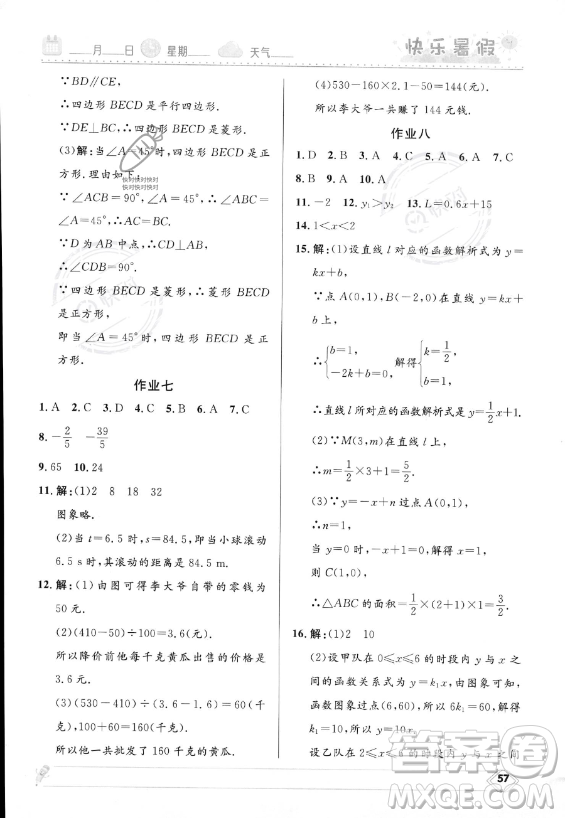 月 日 星期 天气
快乐暑假
∵BD∥CE,
∴四边形 BECD 是平行四边形.
∵DE⊥BC,∴四边形 BECD 是菱形.
(3)解:当∠A=45°时,四边形 BECD 是正
方形.理由如下:
∵∠ACB=90°,∠A=45°,
∴∠ABC=∠A=45°,∴AC=BC.
∵D 为 AB 中点,∴CD⊥AB,
∴∠CDB=90°.
∵四边形 BECD 是菱形,∴菱形 BECD
是正方形,
即当∠A=45°时,四边形 BECD 是正
方形.
作业七
1. A 2. C 3. D 4. C 5. A 6. C 7. A
8. -2/5 -39/5
9. 65 10. 24
11. 解:(1)2 8 18 32
图象略.
(2)当 t=6.5 时,s=84.5,所以当小球滚动
6.5 s 时,其滚动的距离是 84.5 m.
12. 解:(1)由图可得李大爷自带的零钱为
50 元.
(2)(410-50)÷100=3.6(元).
所以降价前他每千克黄瓜出售的价格是
3.6 元.
(3)(530-410)÷(3.6-1.6)=60(千克)
100+60=160(千克).
所以他一共批发了 160 千克的黄瓜.
(4)530-160×2.1-50=144(元).
所以李大爷一共赚了 144 元钱.
作业八
1. D 2. B 3. A 4. D 5. C 6. A 7. C
8. B 9. A 10. A
11. -2 12. y₁>y₂ 13. L=0.6x+15
14. 1<x<2
15. 解:(1)设直线 l 对应的函数解析式为 y=
kx+b,
∵点 A(0,1),B(-2,0)在直线 y=kx+
b 上,
∴{b=1, -2k+b=0, 解得{k=1/2, b=1.
∴直线 l 所对应的函数解析式为 y=1/2x+1.
(2)∵M(3,m)在直线 l 上,
∴m=1/2×3+1=5/2.
(3)∵y=-x+n 过点(0,1),
∴n=1.
当 y=0 时,-x+1=0,解得 x=1.
则 C(1,0).
∴△ABC 的面积=1/2×(2+1)×1=3/2.
16. 解:(1)2 10
(2)设甲队在 0≤x≤6 的时段内 y 与 x 之
间的函数关系式为 y=k₁x,由图象可知,函
数图象过点(6,60),∴6k₁=60,解得
k₁=10,∴y=10x.
设乙队在 2≤x≤6 的时段内 y 与 x 之间
57
快对快对快对
快对快对快对